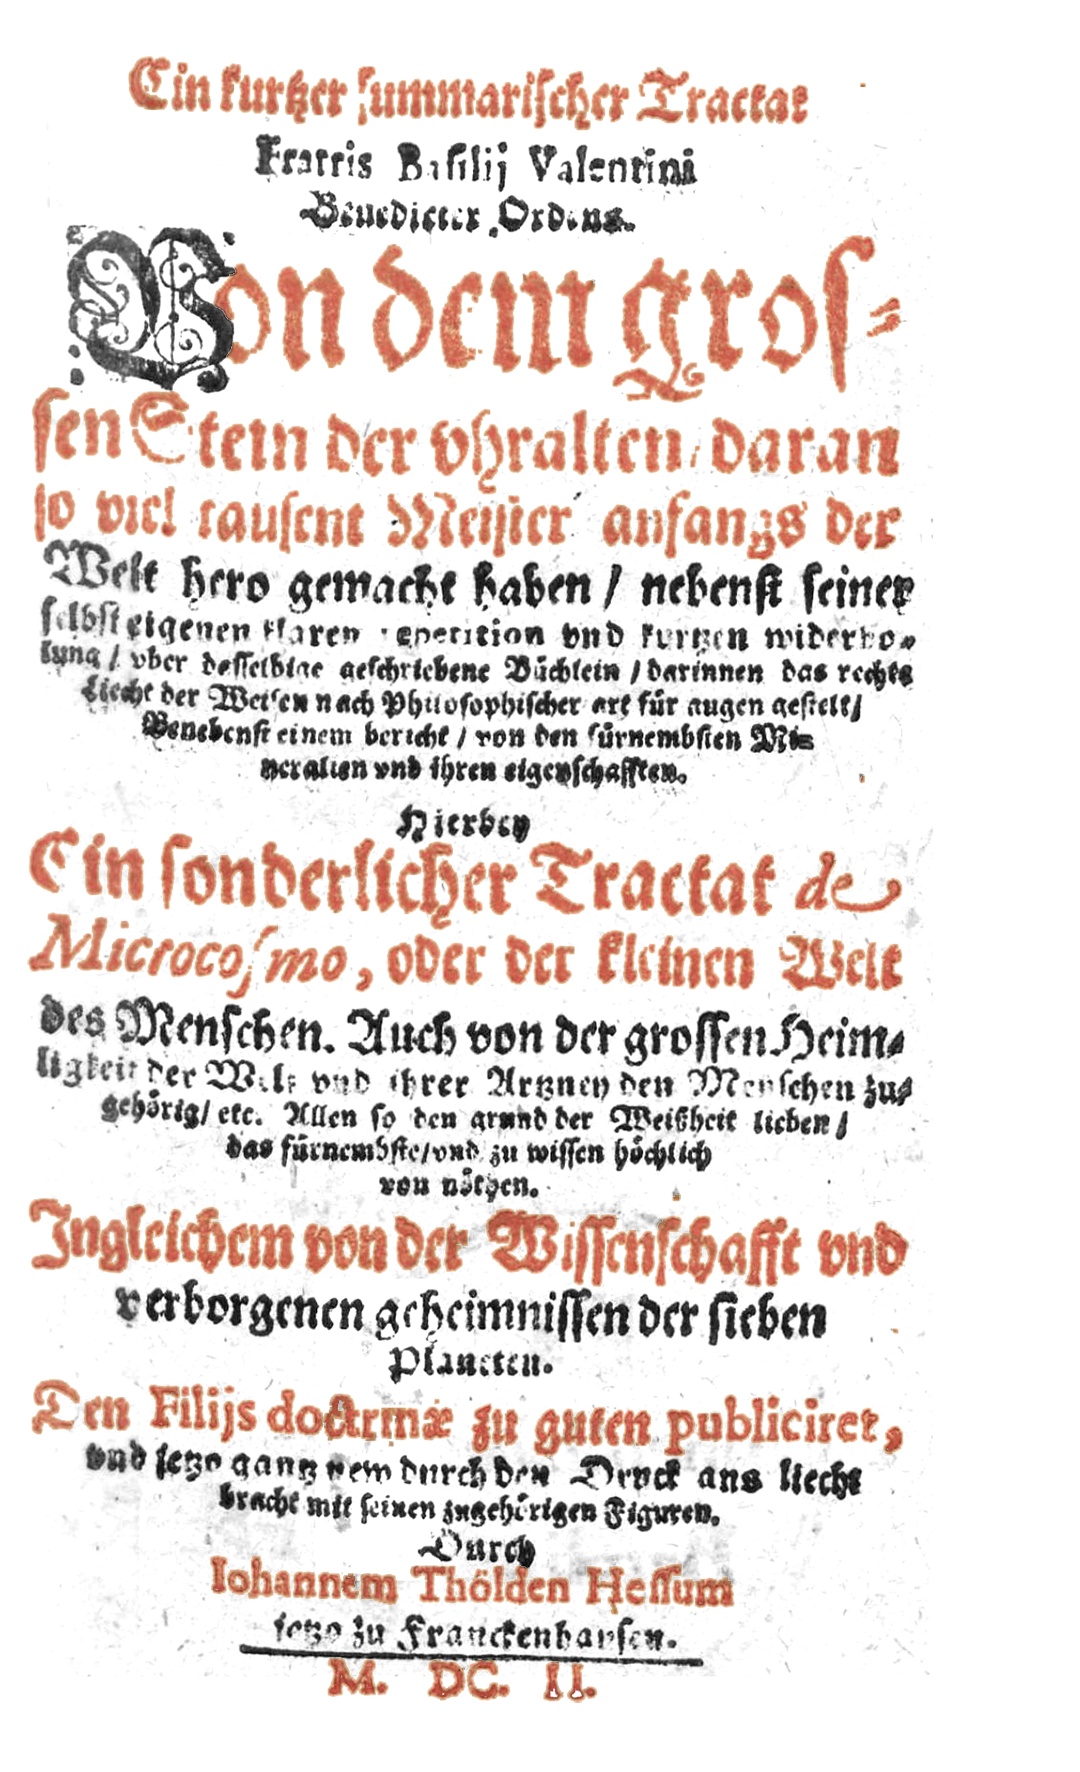 Ein kurtzer summarischer Tractat
Fratris Basilij Valentini
Benedicter Ordens.
Von dem gros-
sen Stein der vhralten / daran
so viel tausent Meister anfangs der
Welt hero gemacht haben / nebenst seiner
selbst eigenen klaren repetition vnd kurtzen widerho-
lung / vber dasselbige geschriebene Büchlein / darinnen das rechte
Liecht der Weisen nach Philosophischer art für augen gestelt /
Benebenst einem bericht / von den fürnembsten Mi-
neralien vnd ihren eigenschafften.
Hierbey
Ein sonderlicher Tractat de
Microcosmo, oder der kleinen Welt
des Menschen. Auch von der grossen Heim-
ligkeit der Welt vnd ihrer Artzney den Menschen zu-
gehörig / etc. Allen so den grund der Weißheit lieben /
das fürnembste / vnd zu wissen höchlich
von nöthen.
Ingleichem von der Wissenschafft vnd
verborgenen geheimnissen der sieben
Planeten.
Den Filijs doctrinæ zu guten publiciret,
vnd jetzo gantz new durch den Druck ans liecht
bracht mit seinen zugehörigen Figuren.
Durch
Iohannem Thölden Hessum
jetzo zu Franckenhausen.
M. DC. II.